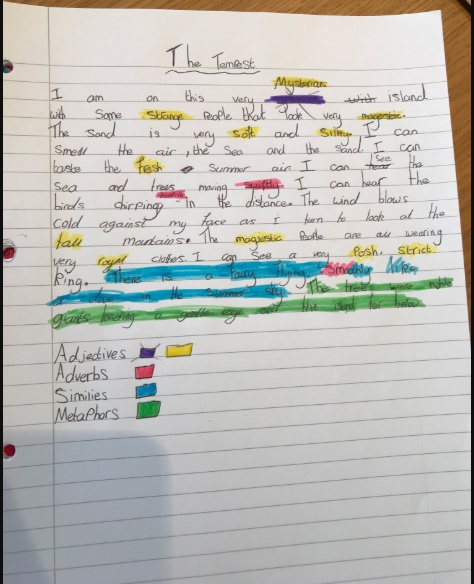 The Tempest
Mysterious
I am on this very with island
with some strange people that look very magestic.
The sand is very soft and silky. I can
smell the air, the sea and the sand. I can
taste the fresh summer air. I can see the
sea and trees moving swiftly. I can hear the
birds chirping in the distance. The wind blows
cold against my face as i turn to look at the
tall mountains. The magjestic people are all wearing
very royal clothes. I can see a very posh, strict
king. There is a fairy flying smoothly like
a dove in the summer sky. The trees were noble
giants keeping a gentle eye over the island far below
Adjectives
Adverbs
Similies
Metaphors